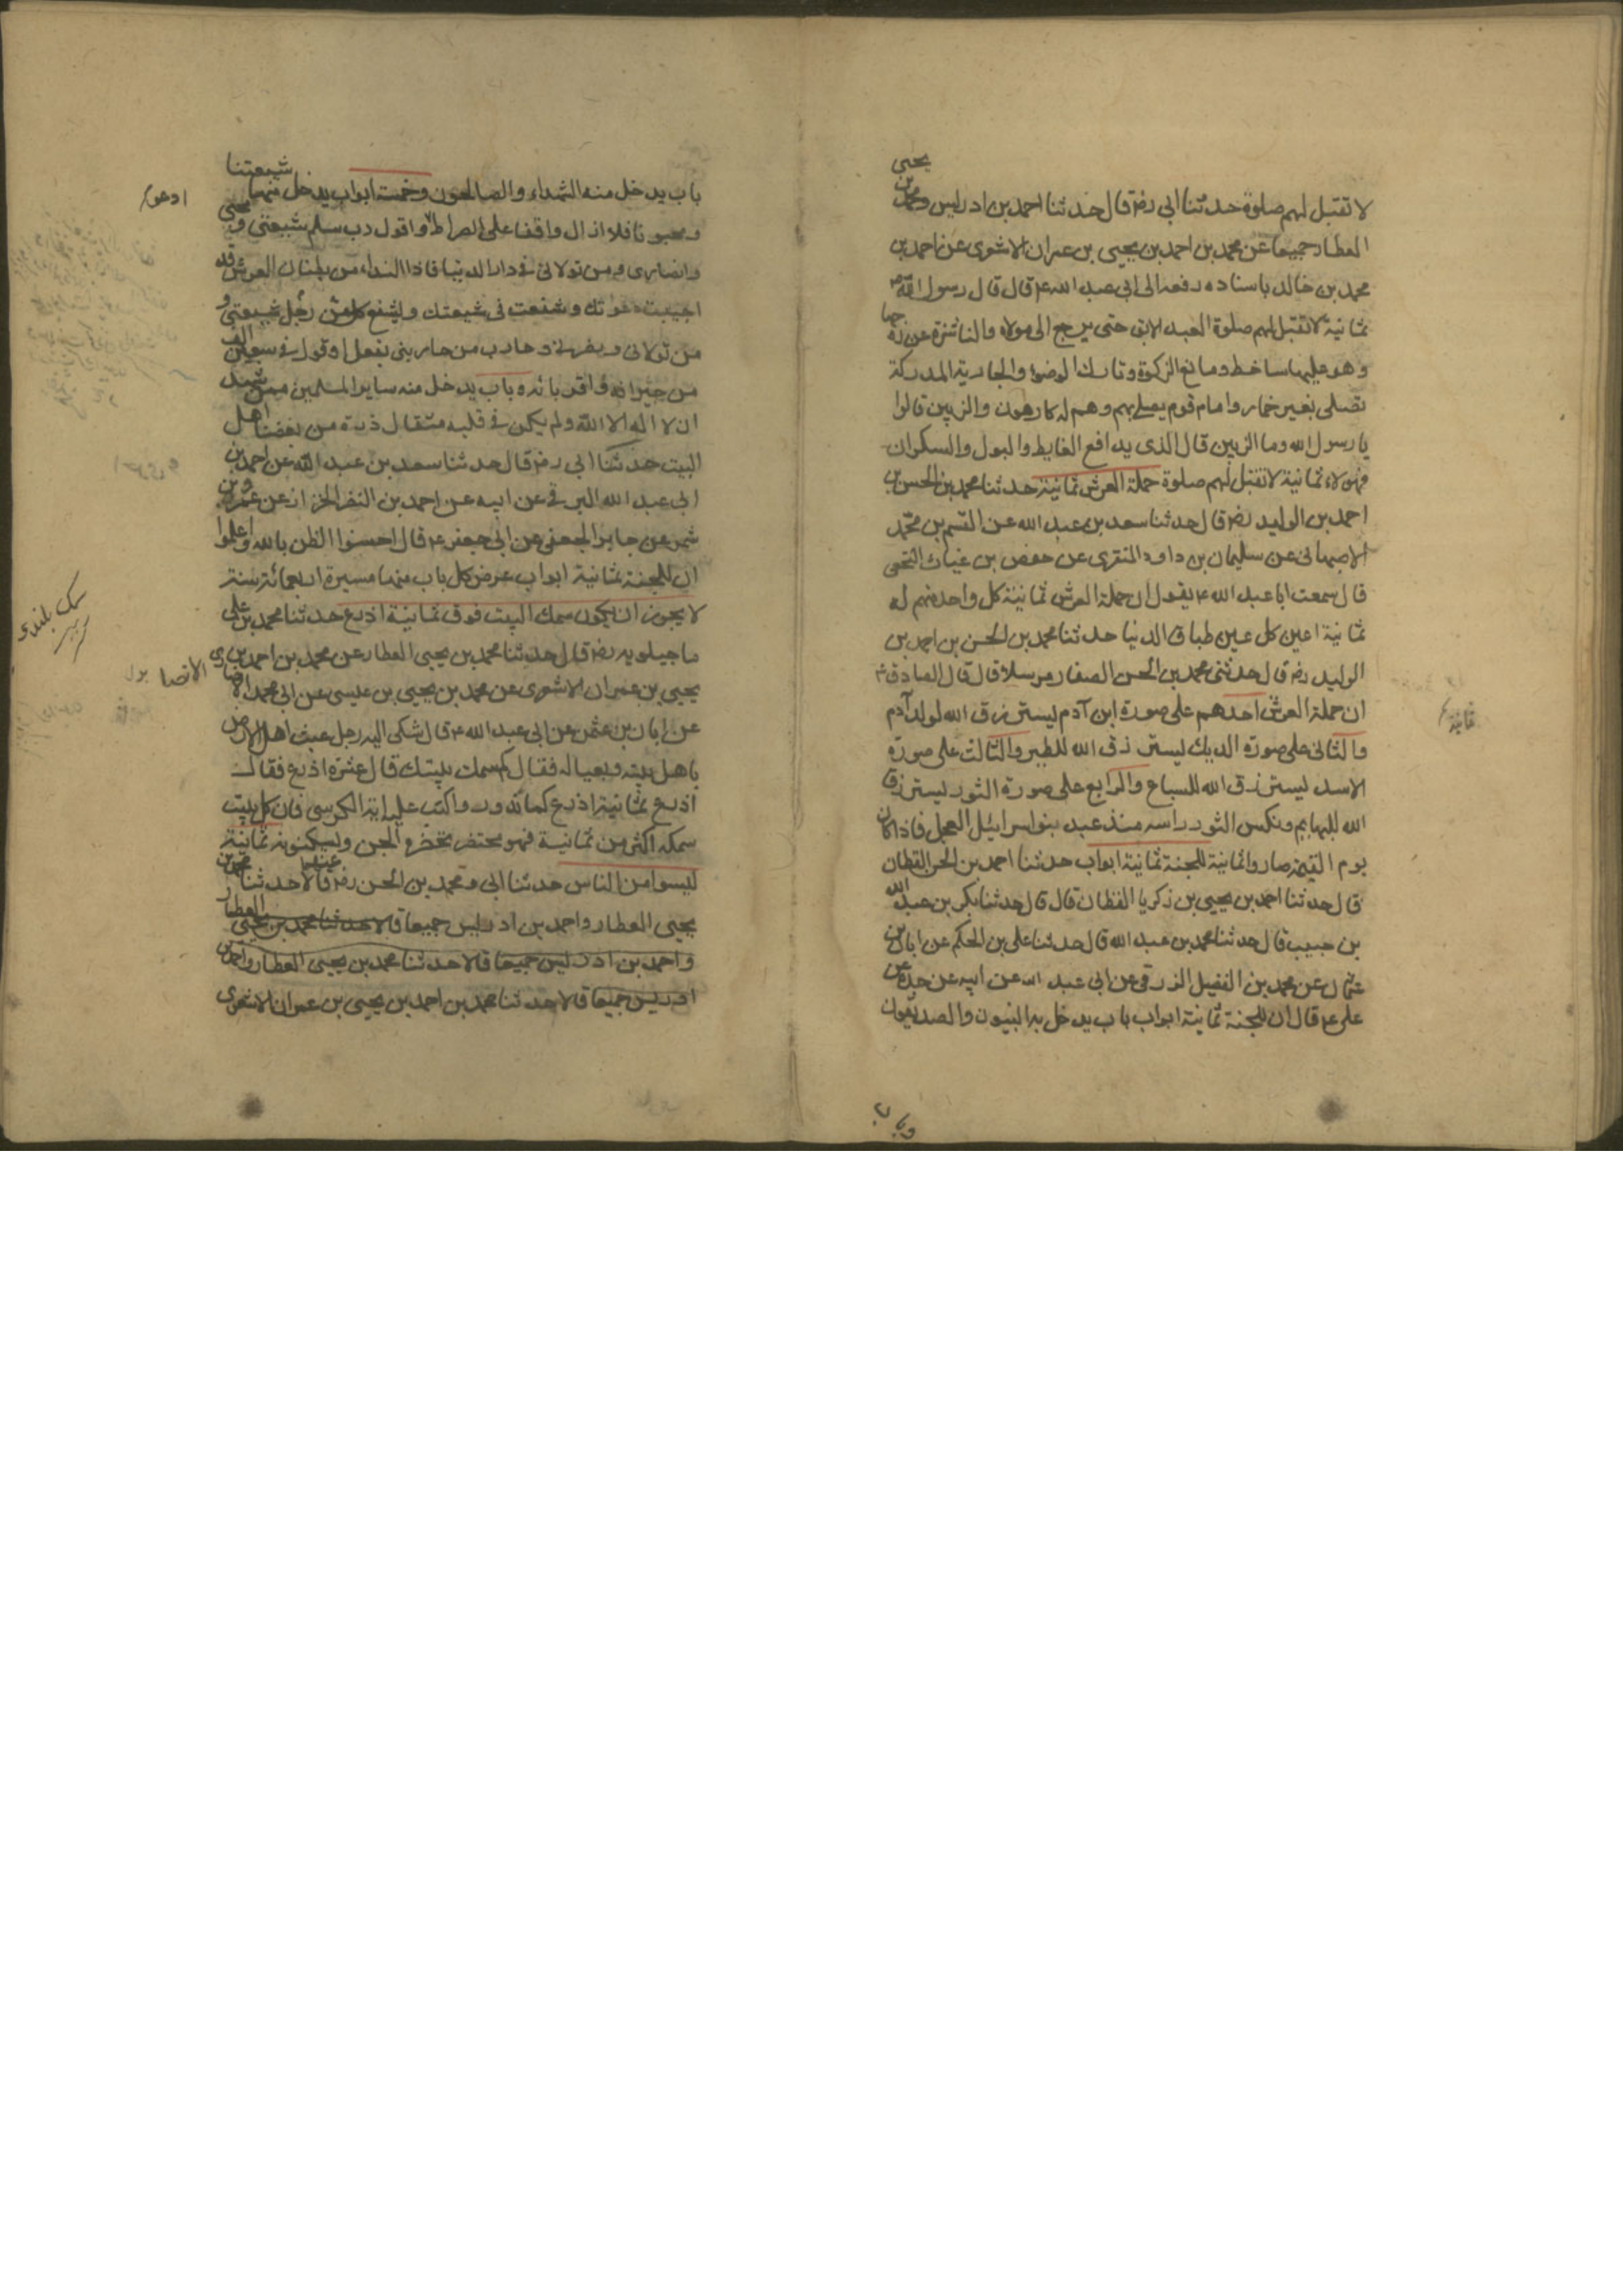 لا تقبل لهم صلوة حدثنا ابي رضه قال حدثنا احمد بن ادريس ومحمد بن يحيى
العطار جميعا عن محمد بن احمد بن يحيى بن عمران الاشعرى عن احمد بن
محمد بن خالد باسناده رفعه الى ابى عبد الله ع قال قال رسول الله ص
ثمانية لا تقبل لهم صلوة العبد الابق حتى يرجع الى مولاه والناشزة عن زوجها
وهو عليها ساخط ومانع الزكوة وتارك الوضوء والجارية المدركة
تصلى بغير خمار وامام قوم يصلى بهم وهم له كارهون والزبين قالوا
يا رسول الله وما الزبين قال الذى يدافع الغايط والبول والسكران
فهولاء ثمانية لا تقبل لهم صلوة حملة العرش ثمانية حدثنا محمد بن الحسن بن
احمد بن الوليد رضه قال حدثنا سعد بن عبد الله عن القسم بن محمد
الاصبهانى عن سليمان بن داود المنقرى عن حفص بن غياث النخعى
قال سمعت ابا عبد الله ع يقول ان حملة العرش ثمانية كل واحد منهم له
ثمانية اعين كل عين طباق الدنيا حدثنا محمد بن الحسن بن احمد بن
الوليد رضه قال حدثنى محمد بن الحسن الصفار مرسلا قال قال الصادق ع
ان حملة العرش احدهم على صورة ابن آدم يسترزق الله لولد آدم
ثمانية
والثانى على صورة الديك يسترزق الله للطير والثالث على صورة
الاسد يسترزق الله للسباع والرابع على صورة الثور يسترزق
الله للبهايم ونكس الثور راسه منذ عبد بنو اسرائيل العجل فاذا كان
يوم القيمة صاروا ثمانية للجنة ثمانية ابواب حدثنا احمد بن الحسن القطان
قال حدثنا احمد بن يحيى بن زكريا القطان قال قال حدثنا بكر بن عبد الله
بن حبيب قال حدثنا محمد بن عبد الله قال حدثنا على بن الحكم عن ابان بن
عثمان عن محمد بن الفضيل الزرقى عن ابى عبد الله عن ابيه عن جده عن
على ع قال ان للجنة ثمانية ابواب باب يدخل به النبيون والصديقون
وباب
باب يدخل منه الشهداء والصالحون وخمسة ابواب يدخل منها شيعتنا
ومحبونا فلا ازال واقفا على الصراط واقول رب سلم شيعتى ومحبى
ادعو
وانصارى ومن تولانى فى دار الدنيا فاذا النداء من بطنان العرش قد
اجيبت دعوتك وشفعت فى شيعتك وليشفع كل رجل من شيعتى و
من تولانى وبنصرنى وحارب من حاربنى بفعل او قول فى سبعين الف
من جيرانه واقربائه وباب يدخل منه سائر المسلمين ممن شهد
ان لا اله الا الله ولم يكن فى قلبه مثقال ذرة من بغضنا اهل
البيت حدثنا ابى رضه قال حدثنا سعد بن عبد الله عن احمد بن
ابى عبد الله البرقى عن ابيه عن احمد بن النضر الخزاز عن عمرو بن
شمر عن جابر الجعفى عن ابى جعفر ع قال احسنوا الظن بالله واعلموا
ان للجنة ثمانية ابواب عرض كل باب منها مسيرة اربعمائة سنة
لا يجوز ان يكون سمك البيت فوق ثمانية اذرع حدثنا محمد بن على
سمك بلندى
ماجيلويه رضه قال حدثنا محمد بن يحيى العطار عن محمد بن احمد بن
يحيى بن عمران الاشعرى عن محمد بن يحيى بن عيسى عن ابى محمد الانصارى
الانصا
عن ابان بن عثمن عن ابى عبد الله ع قال شكى اليه رجل عبث اهل الارض
باهل بيته وبعياله فقال كم سمك بيتك قال عشرة اذرع فقال
اذرع ثمانية اذرع كما تدور واكتب عليه اية الكرسى فان كل بيت
سمكه اكثر من ثمانية فهو محتضر تحضره الجن ويسكنونه ثمانية
ليسوا من الناس حدثنا ابى ومحمد بن الحسن رضه عنهما قالا حدثنا محمد بن
يحيى العطار واحمد بن ادريس جميعا قالا حدثنا محمد بن يحيى العطار
واحمد بن ادريس جميعا قالا حدثنا محمد بن يحيى العطار واحمد بن
ادريس جميعا قالا حدثنا محمد بن احمد بن يحيى بن عمران الاشعرى